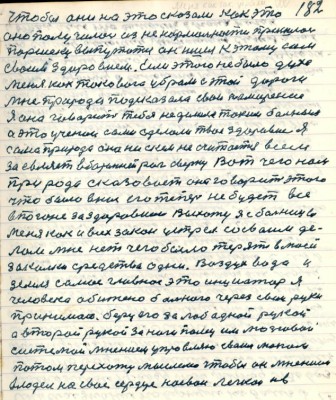 182
чтобы они на это сказали как это
оно получилось из не нормального пришлось
порнецу выпутати он ишел к этому сам
своим здоровием. Если этого небыло духа
меня как такового убрали с этой дороги
мне природа подсказала свои намирение
я она говорит тебя наделили таким больных
а это ученои сами сделали твое здоровие я
сама природа она ни сколь не считается всем
заявляет в бочний рог сверху Вот чего нам
природа сказовает она говорит этого
что было в них его тепер не будет все
в погоне за здоровием выхожу я с больницы
меня как и всех закон цетрел со своим де-
лом мне нет чего было терять в моей
закалки средства одни. Воздух вода и
земля самое главное это инциатор я
человека обижено больного через свои руки
принимаю. беру его за лоб одной рукой
а второй рукой за ноги палец им мозговой
системой мнением управляю своим током
потом перехожу мысленно чтобы он мнением
глядел на свое сердце на свои легкои на